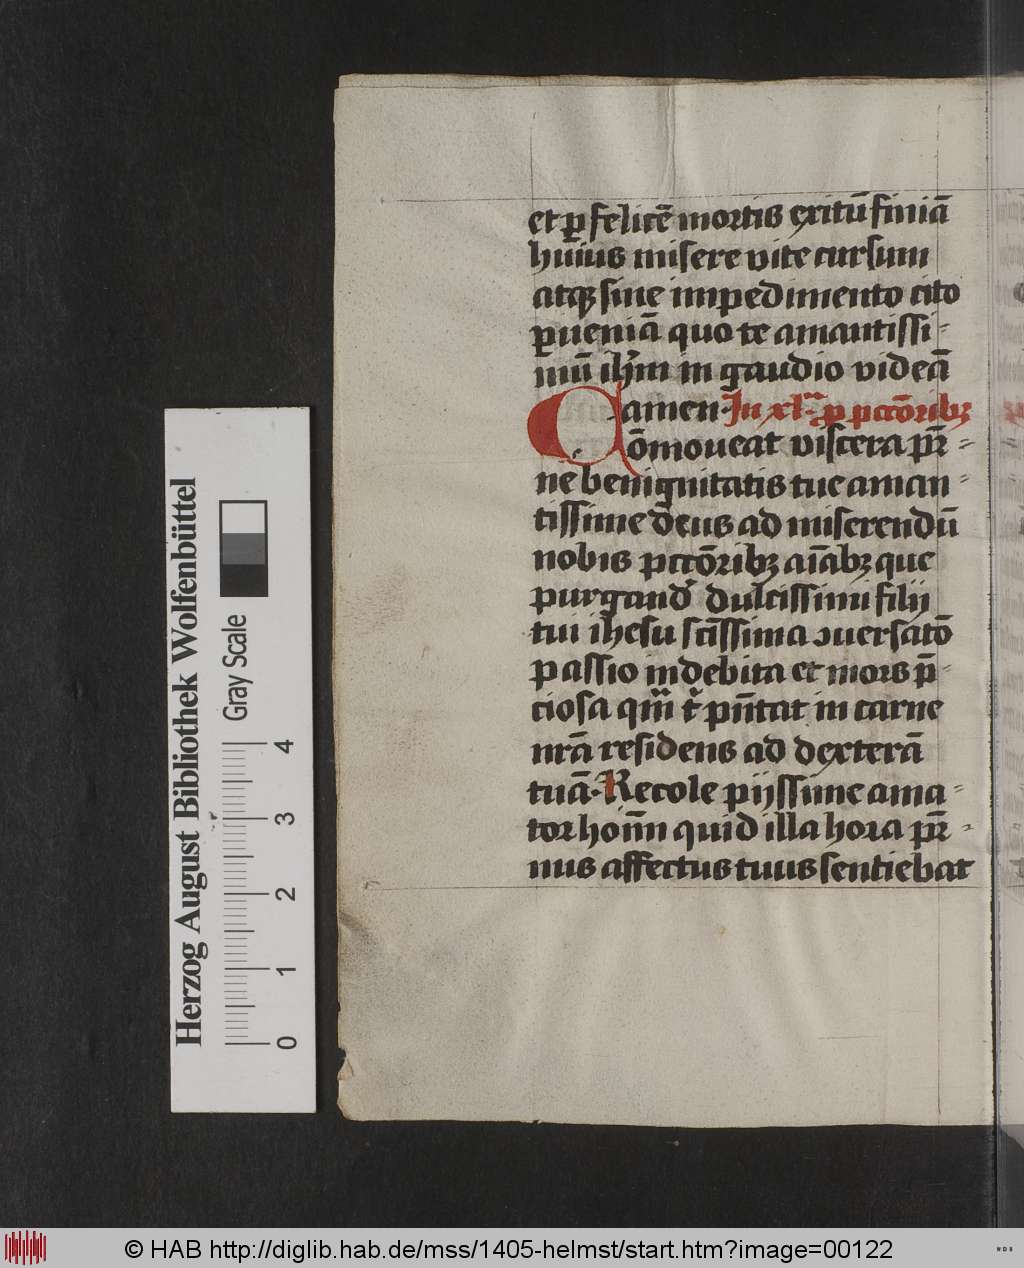 et ꝑ felicē mortis exitū finiā
huius misere vite cursum
atqꝫ sine impedimento cito
ꝑueniā quo te amantissi-
mū ihm̄ in gaudio videā
amen. In xlᵃ ꝓ pctōribꝫ
Cōmoueat viscera pr̄-
ne benignitatis tue aman-
tissime deus ad miserendū
nobis pctōribꝫ aīabꝫ que
purgand' dulcissimi filij
tui ihesu sctīssima ↄuersatō
passio indebita et mors p̄-
ciosa qm̄ t' pn̄tat in carne
nr̄a residens ad dexterā
tuā. Recole pijssime ama-
tor hoīm quid illa hora pr̄-
nus affectus tuus sentiebat
Herzog August Bibliothek Wolfenbüttel
Gray Scale
0 1 2 3 4
© HAB http://diglib.hab.de/mss/1405-helmst/start.htm?image=00122